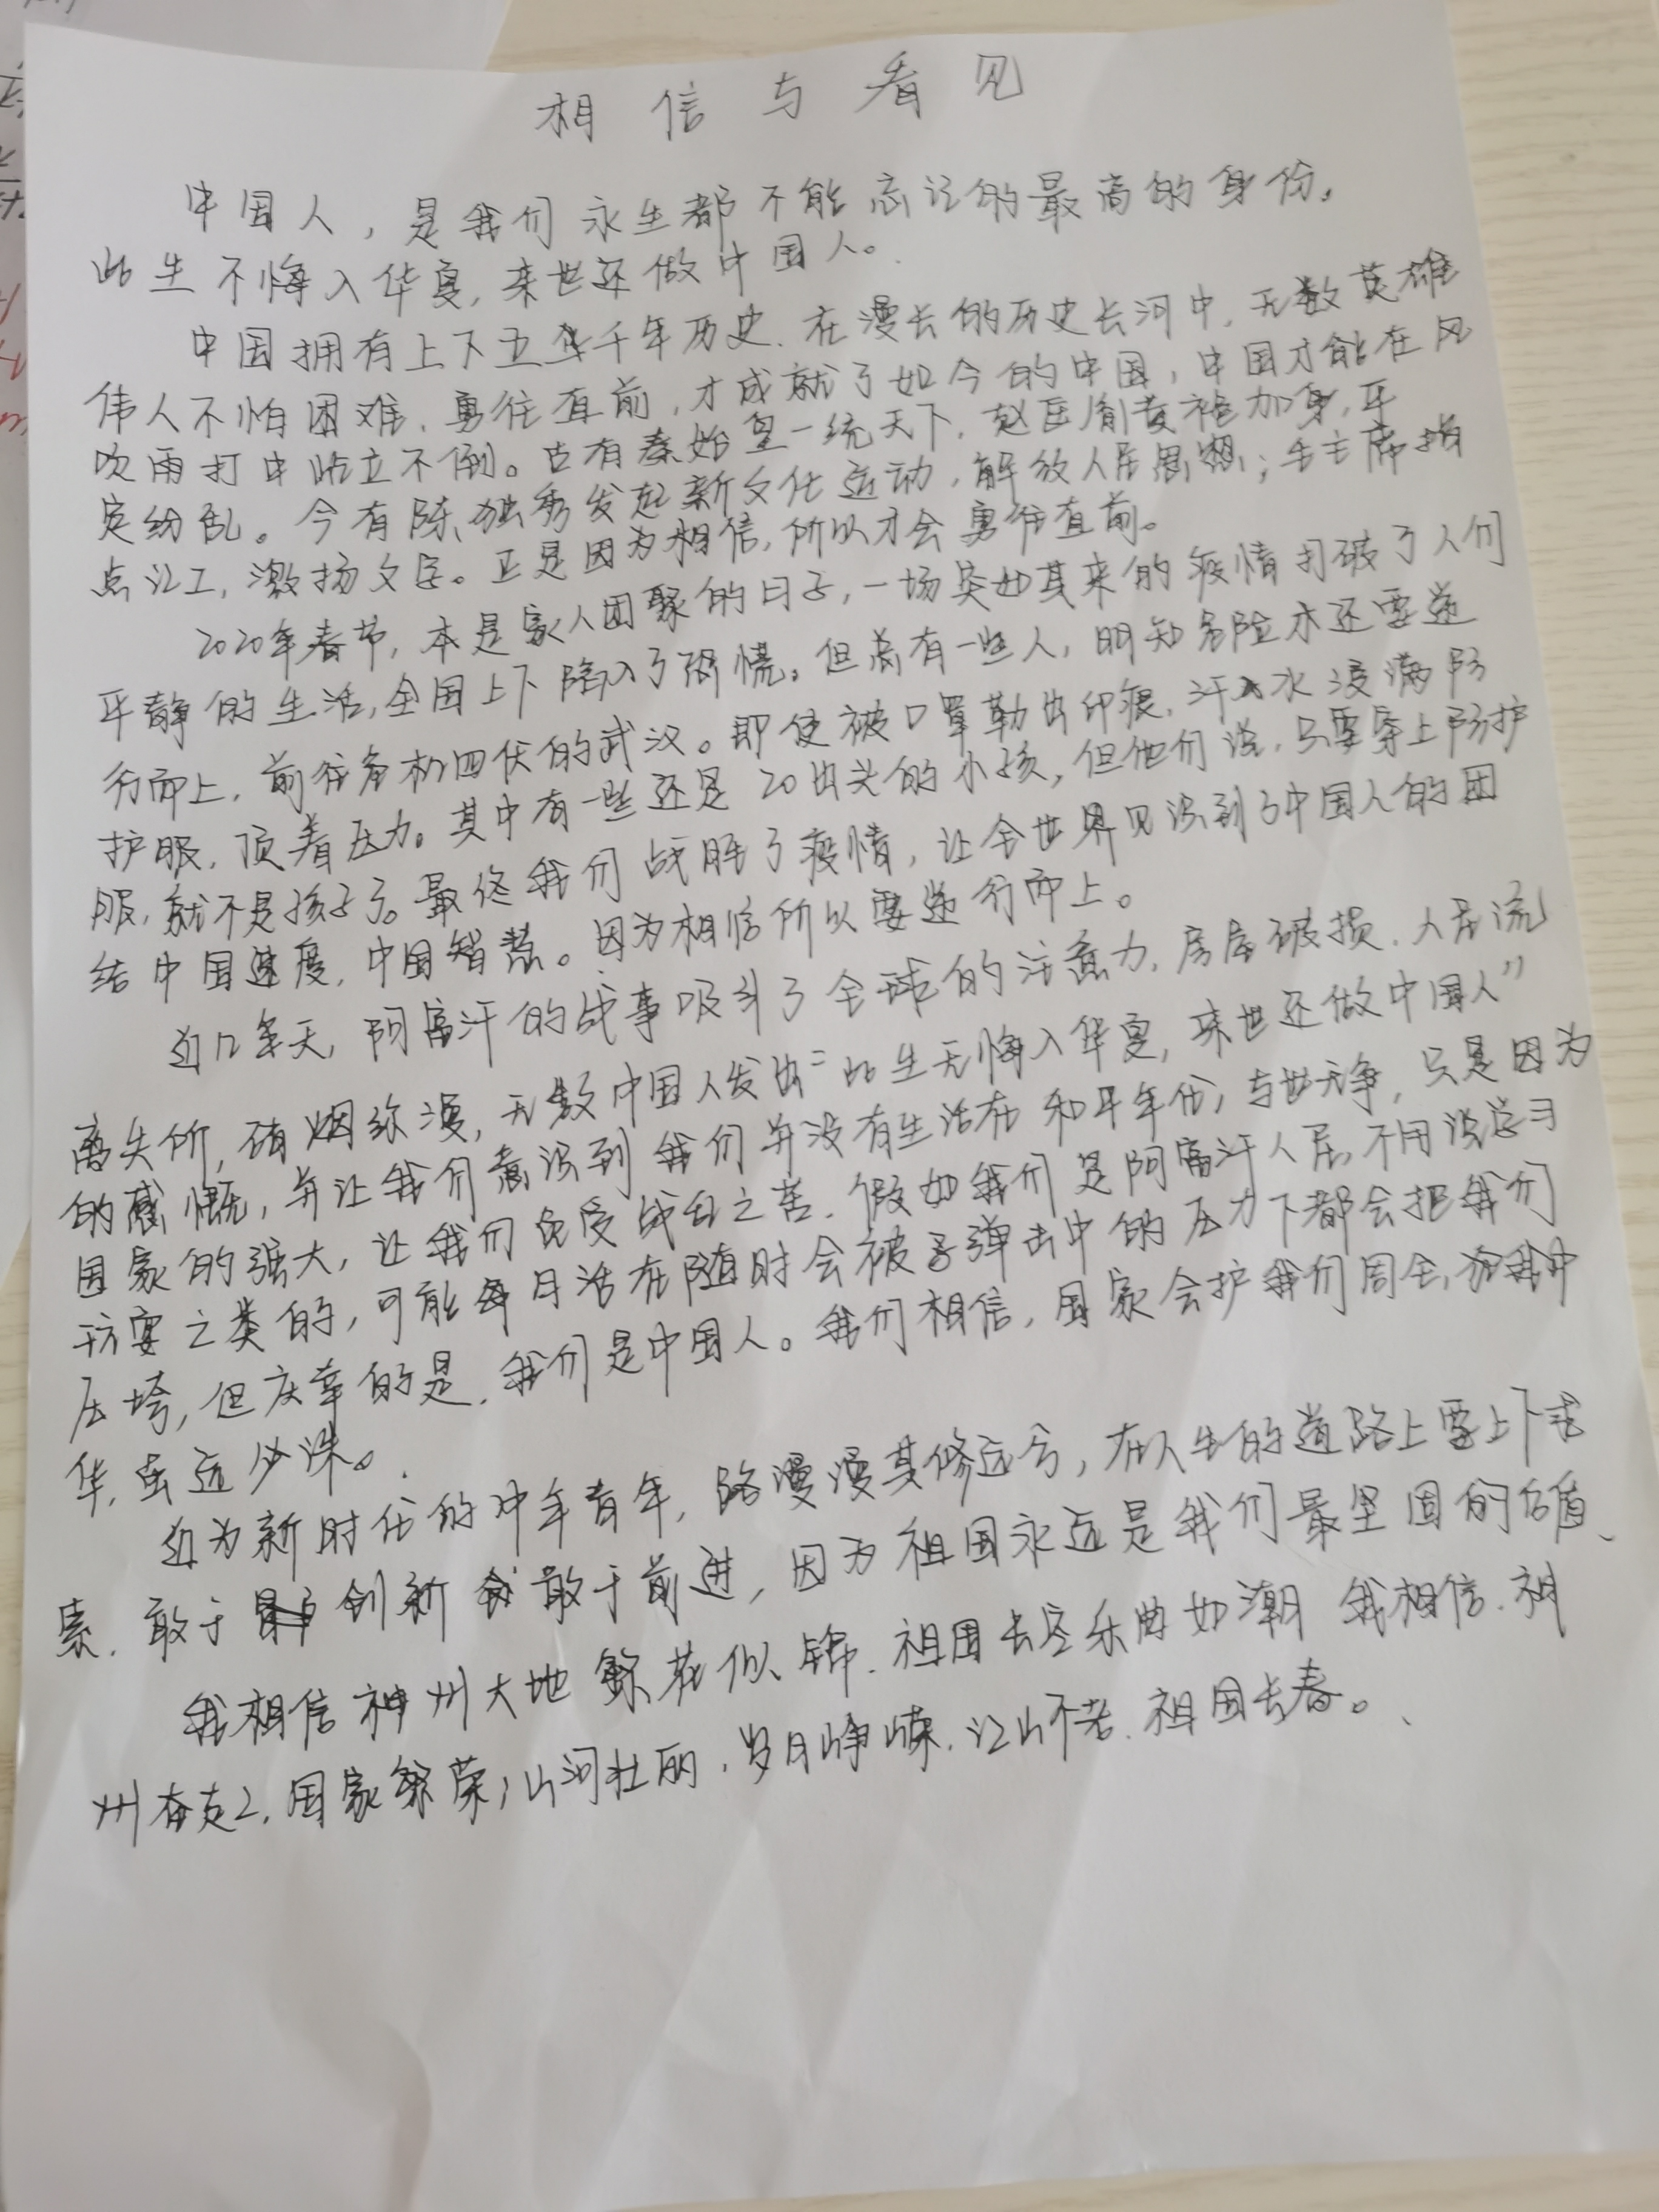 相信与看见
中国人，是我们永生都不能忘记的最高的身份。
此生不悔入华夏，来世还做中国人。
中国拥有上下五千年历史．在漫长的历史长河中，无数英雄
伟人不怕困难．勇往直前，才成就了如今的中国，中国才能在风
吹雨打中屹立不倒。古有秦始皇一统天下．赵匡胤黄袍加身，平
定纷乱。今有陈独秀发起新文化运动，解放人民思想；毛主席指
点江工，激扬文字。正是因为相信，所以才会勇往直前。
2020年春节，本是家人团聚的日子，一场突如其来的疫情打破了人们
平静的生活，全国上下陷入了恐慌。但总有一些人，明知危险亦还要逆
行而上，前往危机四伏的武汉。即使被口罩勒出印痕，汗水浸满防
护服，顶着压力。其中有一些还是20出头的小孩，但他们说，只要穿上防护
服，就不是孩子了。最终我们战胜了疫情，让全世界见识到了中国人的团
结中国速度，中国智慧。因为相信所以要逆行而上。
近几天，阿富汗的战事吸引了全球的注意力，房屋破损．人民流
离失所，硝烟弥漫，无数中国人发出“此生无悔入华夏，来世还做中国人”
的感慨，并让我们意识到我们并没有生活在和平年代，与世无争，只是因为
国家的强大，让我们免受战乱之苦．假如我们是阿富汗人民，不用说学习
玩耍之类的，可能每日活在随时会被子弹击中的压力下都会把我们
压垮，但庆幸的是，我们是中国人。我们相信，国家会护我们周全，犯我中
华，虽远必诛。
为新时代的中年青年，路漫漫其修远兮，在人生的道路上要上下求
索．敢于创新敢于前进，因为祖国永远是我们最坚固的后盾、
我相信神州大地繁花似锦．祖国长空乐曲如潮 我相信．神
州奋起，国家繁荣；山河壮丽，岁月峥嵘．江山不老．祖国长春。